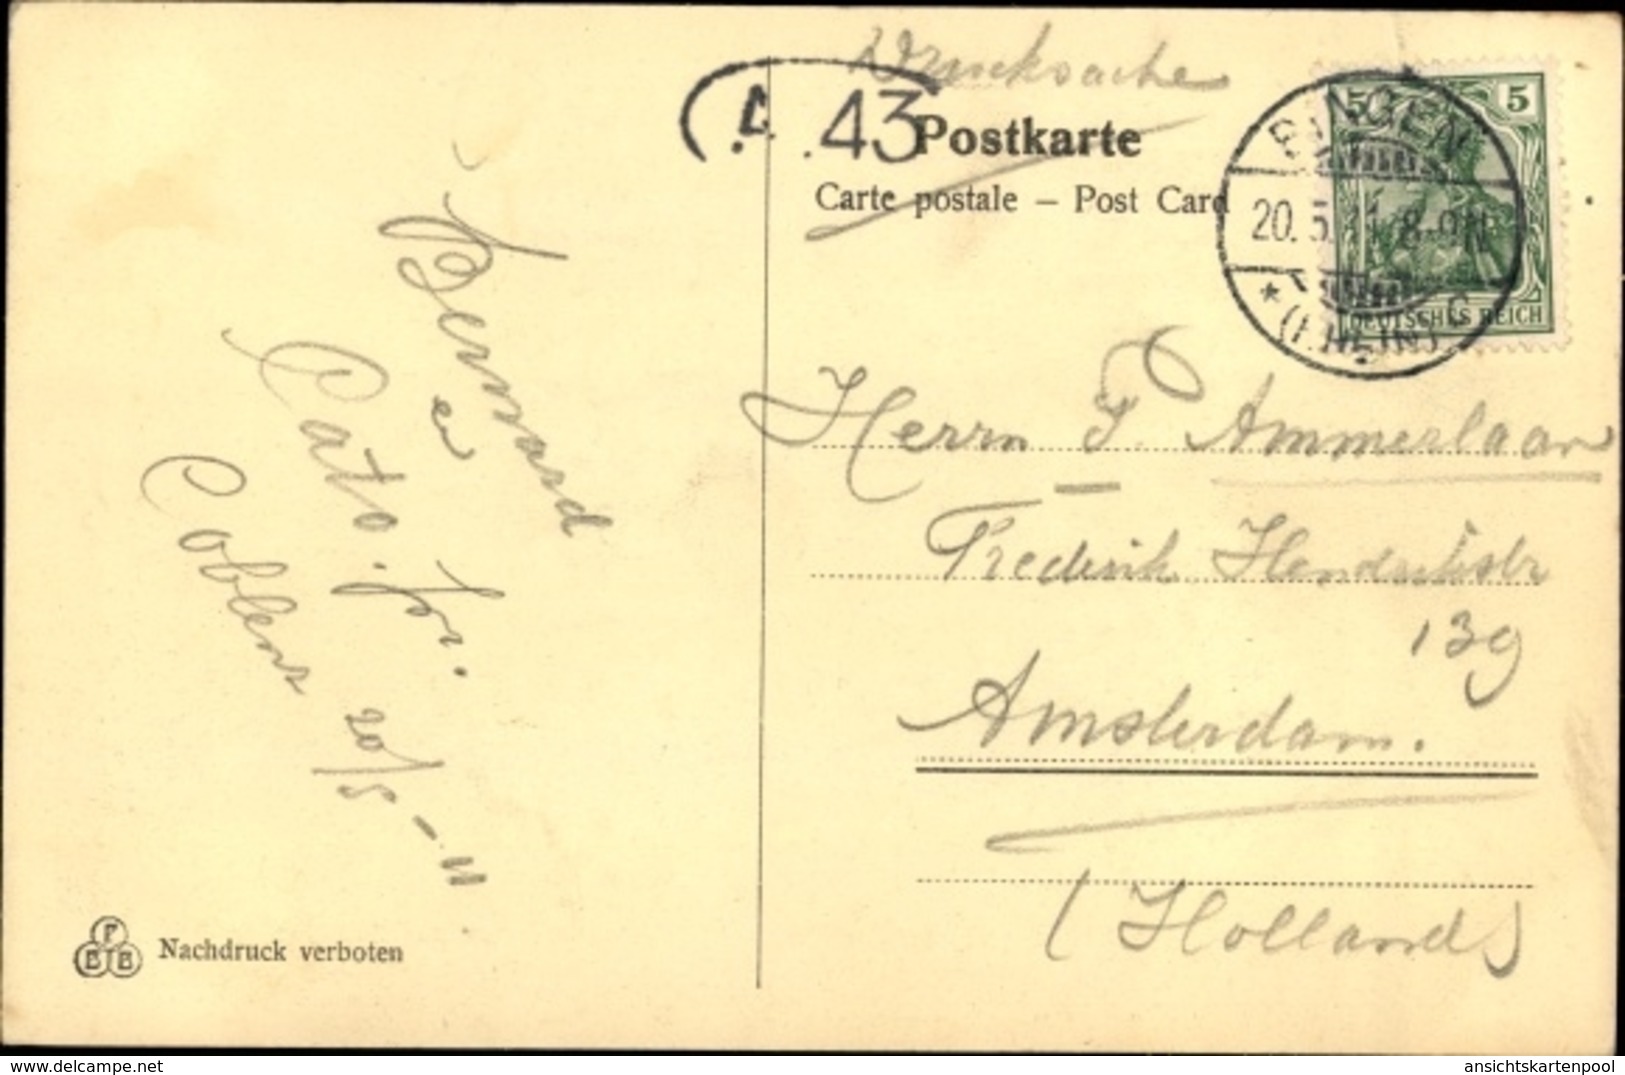 Drucksache
43
Postkarte
Carte postale – Post Card
BINGEN
20. 5. 11. 8-9N
* (RHEIN) C
5 5
DEUTSCHES REICH
Herrn F. Ammerlaan
Frederik Hendrikstr
139
Amsterdam.
(Holland)
Bernard
en
Cato. fr.
Coblenz 20/5 - 11
F
E B
Nachdruck verboten
ansichtskartenpool